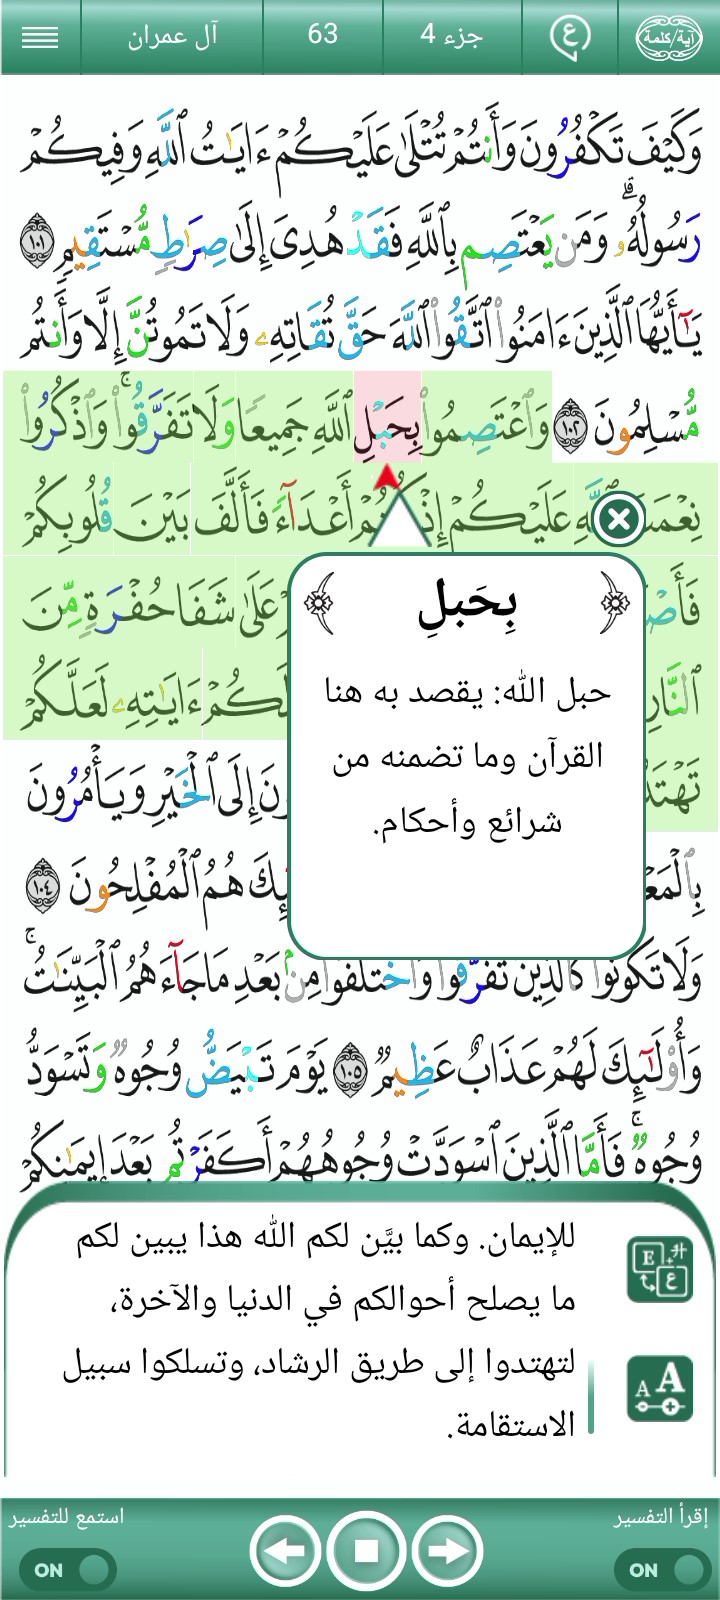 آية/كلمة ع جزء 4 63 آل عمران
وَكَيْفَ تَكْفُرُونَ وَأَنتُمْ تُتْلَىٰ عَلَيْكُمْ ءَايَـٰتُ ٱللَّهِ وَفِيكُمْ
رَسُولُهُۥ ۗ وَمَن يَعْتَصِم بِٱللَّهِ فَقَدْ هُدِىَ إِلَىٰ صِرَٰطٍ مُّسْتَقِيمٍ ١٠١
يَـٰٓأَيُّهَا ٱلَّذِينَ ءَامَنُوا۟ ٱتَّقُوا۟ ٱللَّهَ حَقَّ تُقَاتِهِۦ وَلَا تَمُوتُنَّ إِلَّا وَأَنتُم
مُّسْلِمُونَ ١٠٢ وَٱعْتَصِمُوا۟ بِحَبْلِ ٱللَّهِ جَمِيعًا وَلَا تَفَرَّقُوا۟ ۚ وَٱذْكُرُوا۟
عَلَيْكُمْ أَعْدَآءً فَأَلَّفَ بَيْنَ قُلُوبِكُمْ
عَلَىٰ شَفَا حُفْرَةٍ مِّنَ
ٱلنَّارِ ءَايَـٰتِهِۦ لَعَلَّكُمْ
إِلَى ٱلْخَيْرِ وَيَأْمُرُونَ
هُمُ ٱلْمُفْلِحُونَ ١٠٤
وَلَا تَكُونُوا۟ كَٱلَّذِينَ تَفَرَّقُوا۟ وَٱخْتَلَفُوا۟ مِنۢ بَعْدِ مَا جَآءَهُمُ ٱلْبَيِّنَـٰتُ ۚ
وَأُو۟لَـٰٓئِكَ لَهُمْ عَذَابٌ عَظِيمٌ ١٠٥ يَوْمَ تَبْيَضُّ وُجُوهٌ وَتَسْوَدُّ
وُجُوهٌ ۚ فَأَمَّا ٱلَّذِينَ ٱسْوَدَّتْ وُجُوهُهُمْ أَكَفَرْتُم بَعْدَ إِيمَـٰنِكُمْ
بِحَبلِ
حبل الله: يقصد به هنا
القرآن وما تضمنه من
شرائع وأحكام.
للإيمان. وكما بيَّن لكم الله هذا يبين لكم
ما يصلح أحوالكم في الدنيا والآخرة،
لتهتدوا إلى طريق الرشاد، وتسلكوا سبيل
الاستقامة.
E ع
A A
إقرأ التفسير استمع للتفسير
ON ON